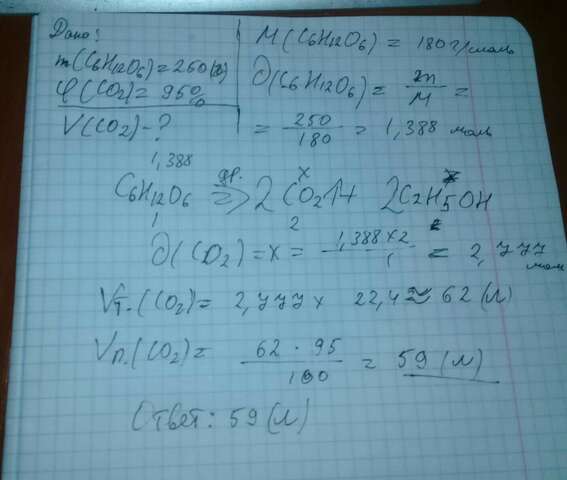 Дано:
m(C6H12O6)=250(г)
φ(CO2)=95%
V(CO2)-?
M(C6H12O6) = 180 г/моль
∂(C6H12O6) = m/M =
= 250/180 = 1,388 моль
1,388 x
C6H12O6 др. => 2CO2↑ + 2C2H5OH
1 2
∂(CO2)=x= 1,388×2/1 = 2,777 моль
Vт.(CO2)= 2,777 × 22,4 ≈ 62 (л)
Vп.(CO2)= 62 · 95/100 = 59 (л)
Ответ: 59 (л)